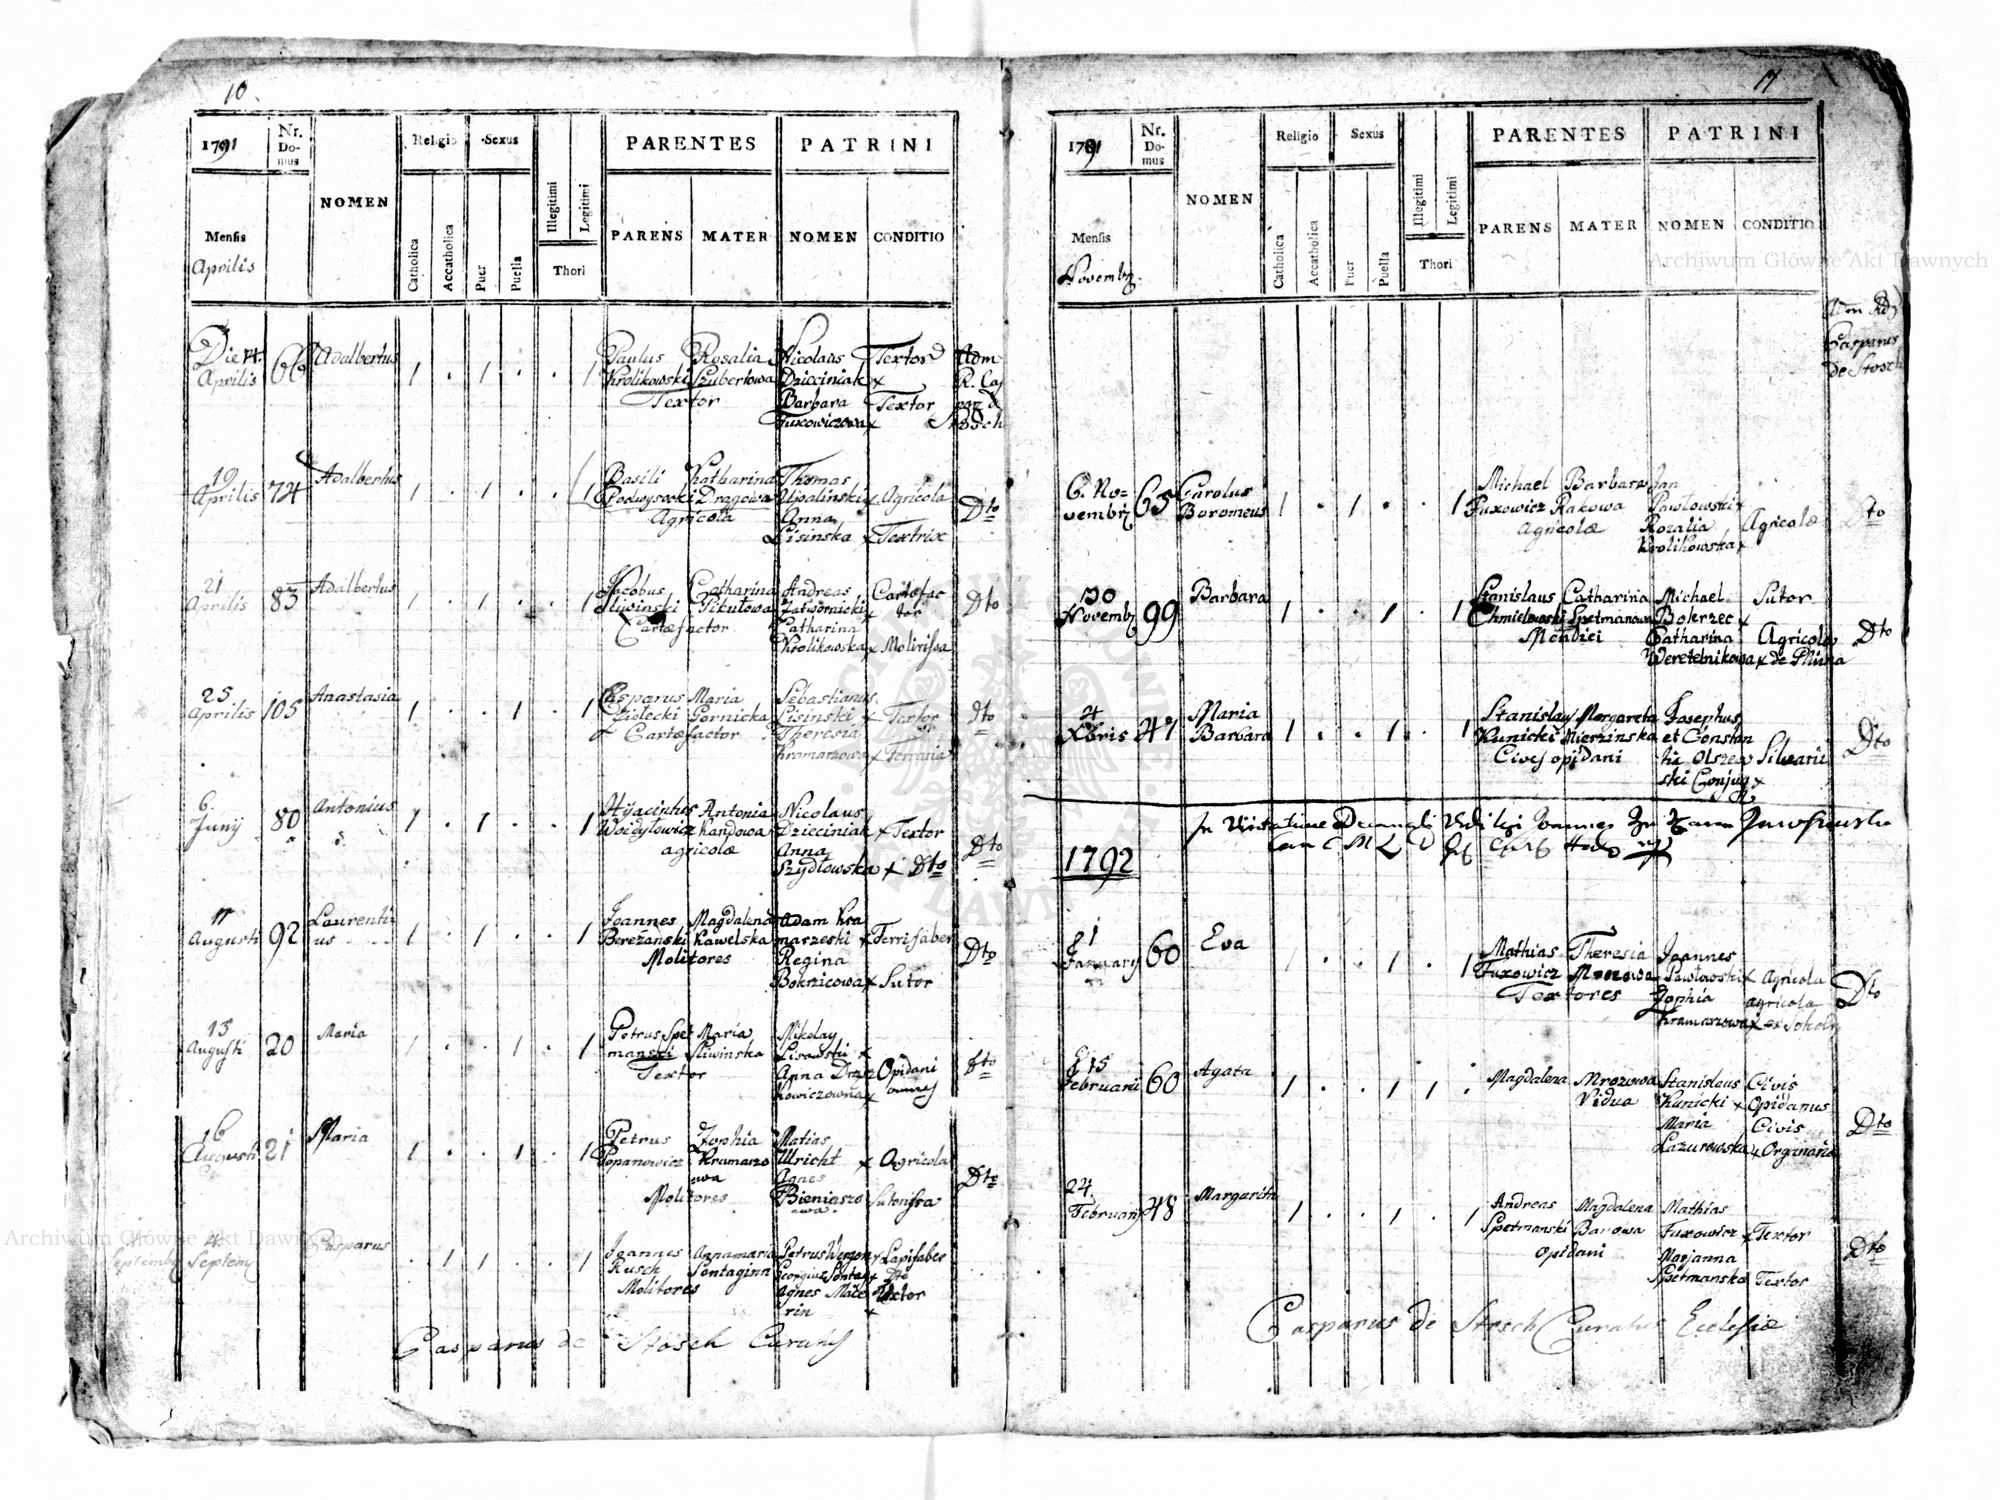 10.
1791
Nr. Do- mus
NOMEN
Religio
Sexus
Illegitimi
Legitimi
Thori
PARENTES
PATRINI
Mensis
Aprilis
Catholica
Accatholica
Puer
Puella
PARENS
MATER
NOMEN
CONDITIO
Die
Aprilis
66
Adalbertus
1 . 1 . . 1
Paulus Rosalia Nicolaus Textor
Krolikowski Szubertowa Dzicciniak x
Textor Barbara Textor
Fuxowiczowa x
Adm
R. Cas
par de
Stosch
19
Aprilis
74
Adalbertus
1 . 1 . . 1
Basili Katharina Thomas
Podwysocki Dragowa Upalinski x Agricola
Agricola Anna
Lisinska x Textrix
Dto
21
Aprilis
83
Adalbertus
1 . 1 . . 1
Jacobus Catharina Andreas Cartefac
Sliwinski Pikulowa Zatwornicki x tor
Cartefactor Catharina
Krolikowska x Molitrissa
Dto
25
Aprilis
105
Anastasia
1 . . 1 . 1
Casparus Maria Sebastianus
Ziolecki Gornicka Lisinski x Textor
Cartefactor Theresia
Kramarzowa x
Dto
6.
Junij
80
Antonius
1 . 1 . . 1
Hyacinthus Antonia Nicolaus
Woidyłowicz Kandowa Dzicciniak x Textor
agricolæ Anna
Szydłowska x Dto
Dto
11
Augusti
92
Laurenti
us
1 . 1 . . 1
Joannes Magdalena Adam Kra
Bereżanski Kawelska marzeski x Ferrifaber
Molitores Regina
Bokrzicowa x Sutor
Dto
15
Augusti
20
Maria
1 . . 1 . 1
Petrus Spet Maria Mikolay
manski Sliwinska Lisowski x
Textor Anna Drzisz Opidani
kowiczowna x omnes
Dto
16
Augusti
21
Maria
1 . . 1 . 1
Petrus Zophia Matias
Popanowicz Kramarzo Ulricht x Agricola
wa Agnes
Molitores Bieniaszo Sutorissa
wa
Dto
4
Septembr
Casparus
. 1 1 . . 1
Joannes Annamaria Petrus x Lapifaber
Rusch Sontaginn Georgius Sontag x Dto
Molitores Agnes Mace Textor
rin x
Casparus de Stosch Curatus
17
1791
Nr. Do- mus
NOMEN
Religio
Sexus
Illegitimi
Legitimi
Thori
PARENTES
PATRINI
Mensis
Novembr.
Catholica
Accatholica
Puer
Puella
PARENS
MATER
NOMEN
CONDITIO
Adm Rd
Casparus
de Stosch
6. No=
vembr
65
Carolus
Boromeus
1 . 1 . . 1
Michael Barbara Jan
Fuxowicz Rakowa Pawłowski x
Agricolæ Rozalia Agricolæ
Krolikowska x
Dto
30
Novemb
99
Barbara
1 . . 1 . 1
Stanislaus Catharina Michael Sutor
Chmielowski Spetmanowa Bokrzec x
Mendici Catharina Agricola
Weretelnikowa x de Plihna
Dto
4
Xbris
47
Maria
Barbara
1 . . 1 . 1
Stanislaus Margareta Josephus
Kunicki Mierzinska et Constan
Cives opidani tia Olszew Silvarii
ski Conjug x
Dto
In Visitatione Decanali Vidi Joannes
1792
1
January
60
Eva
1 . . 1 . 1
Mathias Theresia Joannes
Fuxowicz Mrozowa Pawlowski x Agricola
Textores Zophia agricola
Kramarzowa x ex
Dto
15
Februarii
60
Agata
1 . . 1 1 .
Magdalena Mrozowa Stanislaus Civis
Vidua Kunicki x Opidanus
Maria Civis
Lazurowska x
Dto
24
February
48
Margarita
1 . . 1 . 1
Andreas Magdalena Mathias
Spetmanski Barowa Fuxowicz x Textor
Opidani Marjanna
Spetmanska Textor
Dto
Casparus de Stosch Curatus Ecclesiæ
Archiwum Główne Akt Dawnych
Archiwum Główne Akt Dawnych